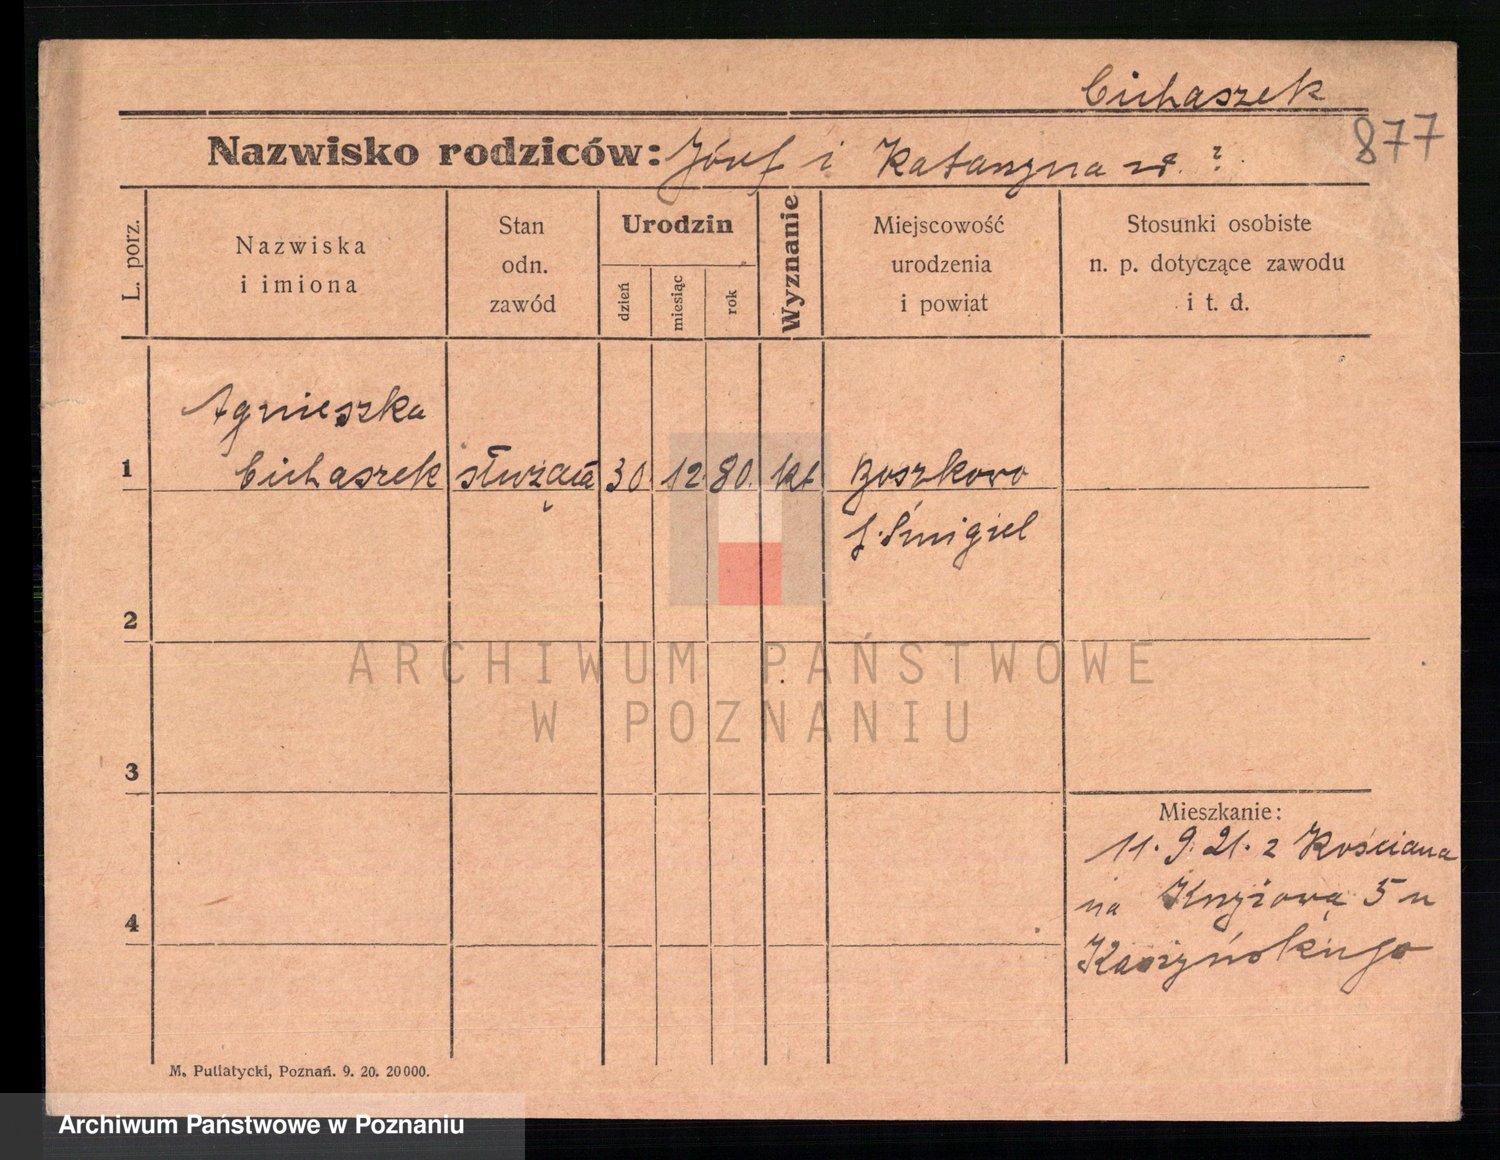 Cichaszek
877
Nazwisko rodziców: Józef i Katarzyna zd. ?
L. porz.
Nazwiska
i imiona
Stan
odn.
zawód
Urodzin
dzień
miesiąc
rok
Wyznanie
Miejscowość
urodzenia
i powiat
Stosunki osobiste
n. p. dotyczące zawodu
i t. d.
Agnieszka
1 Cichaszek służąca 30. 12. 80. kt Boszkowo
p. Śmigiel
2
ARCHIWUM PAŃSTWOWE
W POZNANIU
3
Mieszkanie:
11. 9. 21. z Kościana
na Krzyżową 5 u
4
Kaczyńskiego
M. Putiatycki, Poznań. 9. 20. 20000.
Archiwum Państwowe w Poznaniu